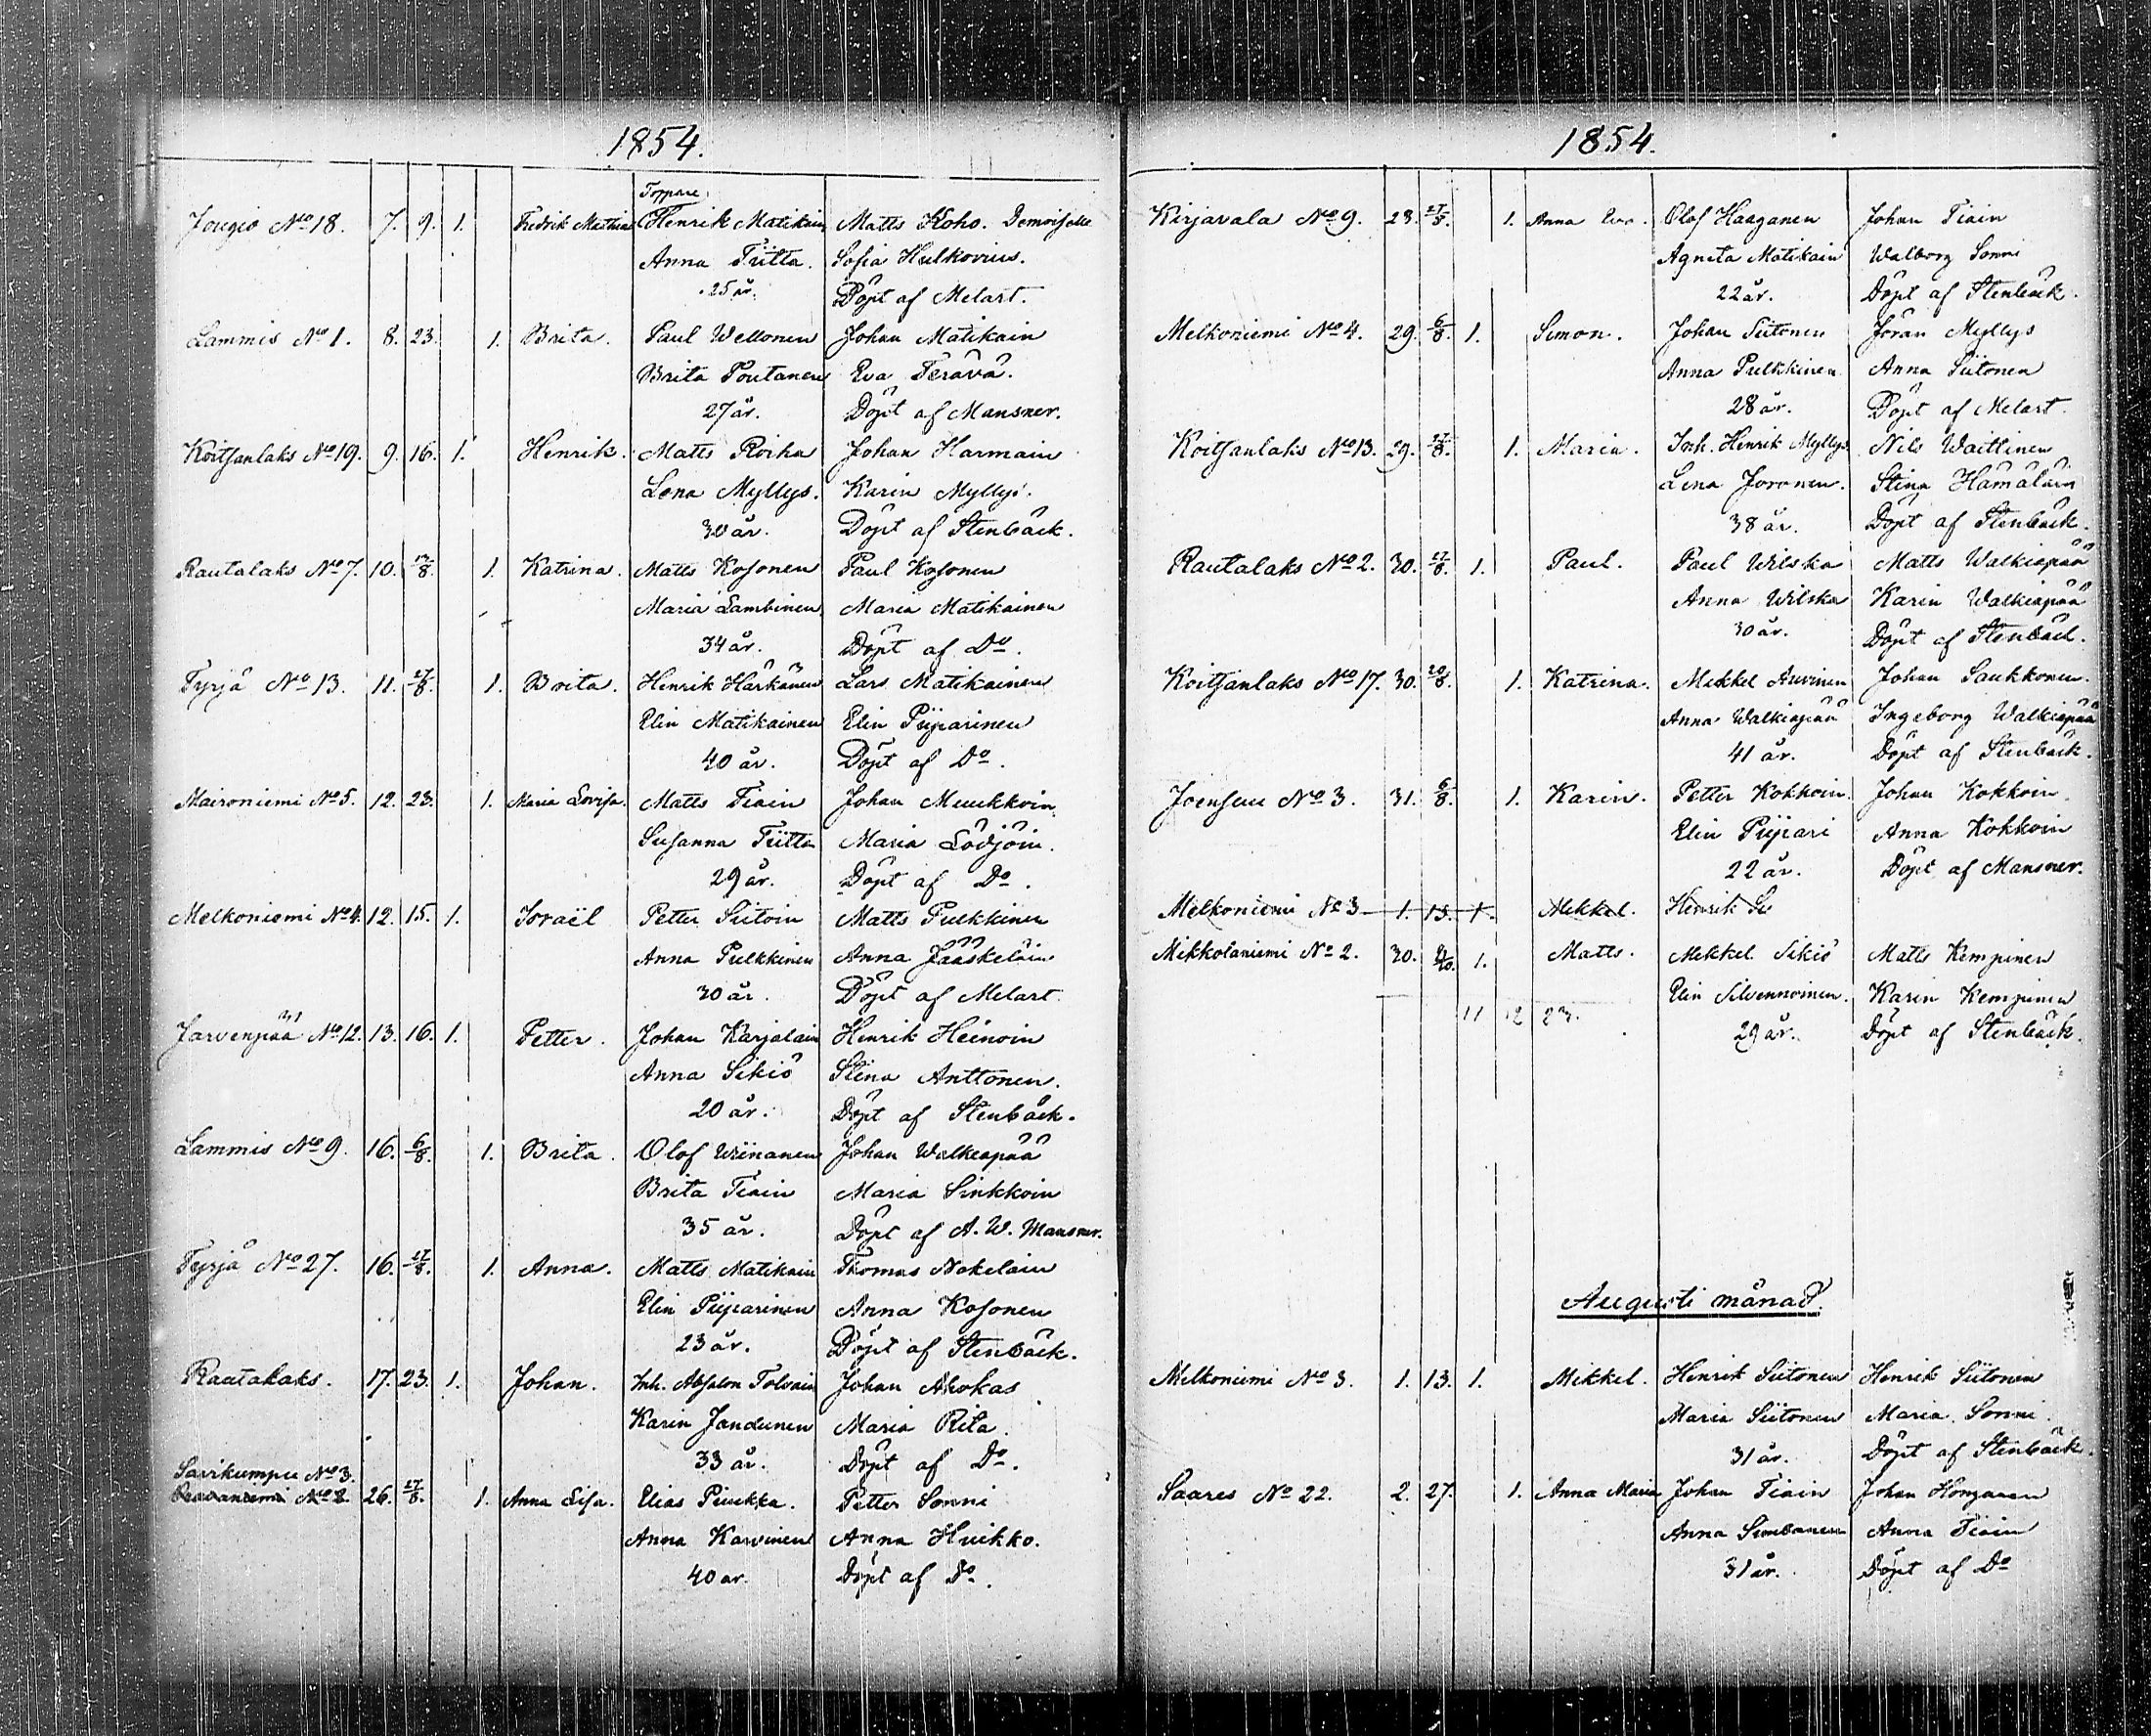 1854.
Torpare
Jougio No 18. 7. 9. 1. Fredrik Mathias Henrik Matikain Matts Koho. Demoiselle
Anna Tiitta. Sofia Hulkovius.
25 år. Döpt af Melart.
Lammis No 1. 8. 23. 1. Brita. Paul Wellonen Johan Matikain
Brita Poutanen Eva Terävä.
27 år. Döpt af Mansner.
Koitsanlaks No 19. 9. 16. 1. Henrik. Matts Roiha Johan Harmain
Lena Myllys. Karin Myllys.
30 år. Döpt af Stenbäck.
Rautalaks No 7. 10. 13/8. 1. Katrina. Matts Kosonen Paul Kosonen
Maria Lambinen Maria Matikainen
34 år. Döpt af Do.
Tyrjä No 13. 11. 27/8. 1. Brita. Henrik Härkänen Lars Matikainen
Elin Matikainen Elin Piiparinen
40 år. Döpt af Do.
Maironiemi No 5. 12. 23. 1. Maria Lovisa. Matts Tiain Johan Muukkoin
Susanna Tiitta Maria Lödjöin.
29 år. Döpt af Do.
Melkoniemi No 4. 12. 15. 1. Israël Petter Siitoin Matts Pulkkinen
Anna Pulkkinen Anna Jääskeläin
30 år. Döpt af Melart.
Järvenpää No 12. 13. 16. 1. Petter. Johan Karjalain Henrik Heinoin
Anna Sikiö Stina Anttonen.
20 år. Döpt af Stenbäck.
Lammis No 9. 16. 6/8. 1. Brita. Olof Wiinanen Johan Walkeapää
Brita Tiain Maria Sinkkoin
35 år. Döpt af A. W. Mansner.
Tyrjä No 27. 16. 27/8. 1. Anna. Matts Matikain Thomas Nokelain
Elin Piiparinen Anna Kosonen
23 år. Döpt af Stenbäck.
Rautalaks. 17. 23. 1. Johan. Inh. Absalon Tolvain Johan Ahokas
Karin Jandunen Maria Rita.
33 år. Döpt af Do.
Savikumpu No 3.
No 8. 26. 27/8. 1. Anna Lisa. Elias Puukka. Petter Sonni
Anna Karvinen Anna Huikko.
40 år. Döpt af Do.
1854.
Kirjavala No 9. 28. 27/8. 1. Anna Eva. Olof Haaganen Johan Tiain
Agneta Matikain Walborg Sonni
22 år. Döpt af Stenbäck.
Melkoniemi No 4. 29. 6/8. 1. Simon. Johan Siitonen Jöran Myllys
Anna Pulkkinen Anna Siitonen
28 år. Döpt af Melart.
Koitsanlaks No 13. 29. 27/8. 1. Maria. Inh. Henrik Myllys Nils Waittinen
Lena Joronen. Stina Hämäläin
38 år. Döpt af Stenbäck.
Rautalaks No 2. 30. 27/8. 1. Paul. Paul Wilska Matts Walkiapää
Anna Wilska Karin Walkiapää
30 år. Döpt af Stenbäck.
Koitsanlaks No 17. 30. 20/8. 1. Katrina. Mikkel Auvinen Johan Saukkonen.
Anna Walkiapää Ingeborg Walkiapää
41 år. Döpt af Stenbäck.
Joensuu No 3. 31. 6/8. 1. Karin. Petter Kokkoin. Johan Kokkoin
Elin Piipari Anna Kokkoin
22 år. Döpt af Mansner.
Melkoniemi No 3 1. 13. 1. Mikkel. Henrik Si
Mikkolaniemi No 2. 30. 1. Matts. Mikkel Sikiö Matts Kempinen
Elin Silvennoinen. Karin Kempinen
11 12 23. 29 år. Döpt af Stenbäck.
Augusti månad.
Melkoniemi No 3. 1. 13. 1. Mikkel. Henrik Siitonen Henrik Siitonen
Maria Siitonen Maria Sonni.
31 år. Döpt af Stenbäck.
Saares No 22. 2. 27. 1. Anna Maria Johan Tiain Johan Honganen
Anna Simbanen Anna Tiain
31 år. Döpt af Do